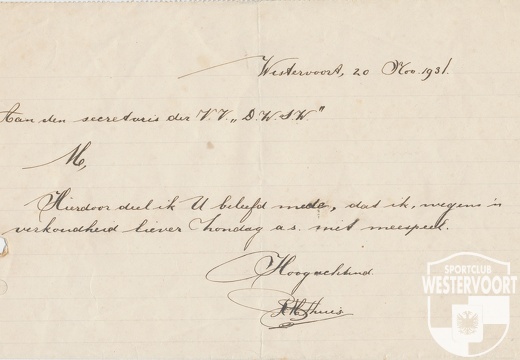 Westervoort, 20 Nov. 1931.
Aan den secretaris der V.V. „D.W.S.W."
M,
Hierdoor deel ik U beleefd mede, dat ik, wegens
verkoudheid liever Zondag a.s. niet meespeel.
Hoogachtend
Thuis
SPORTCLUB
WESTERVOORT